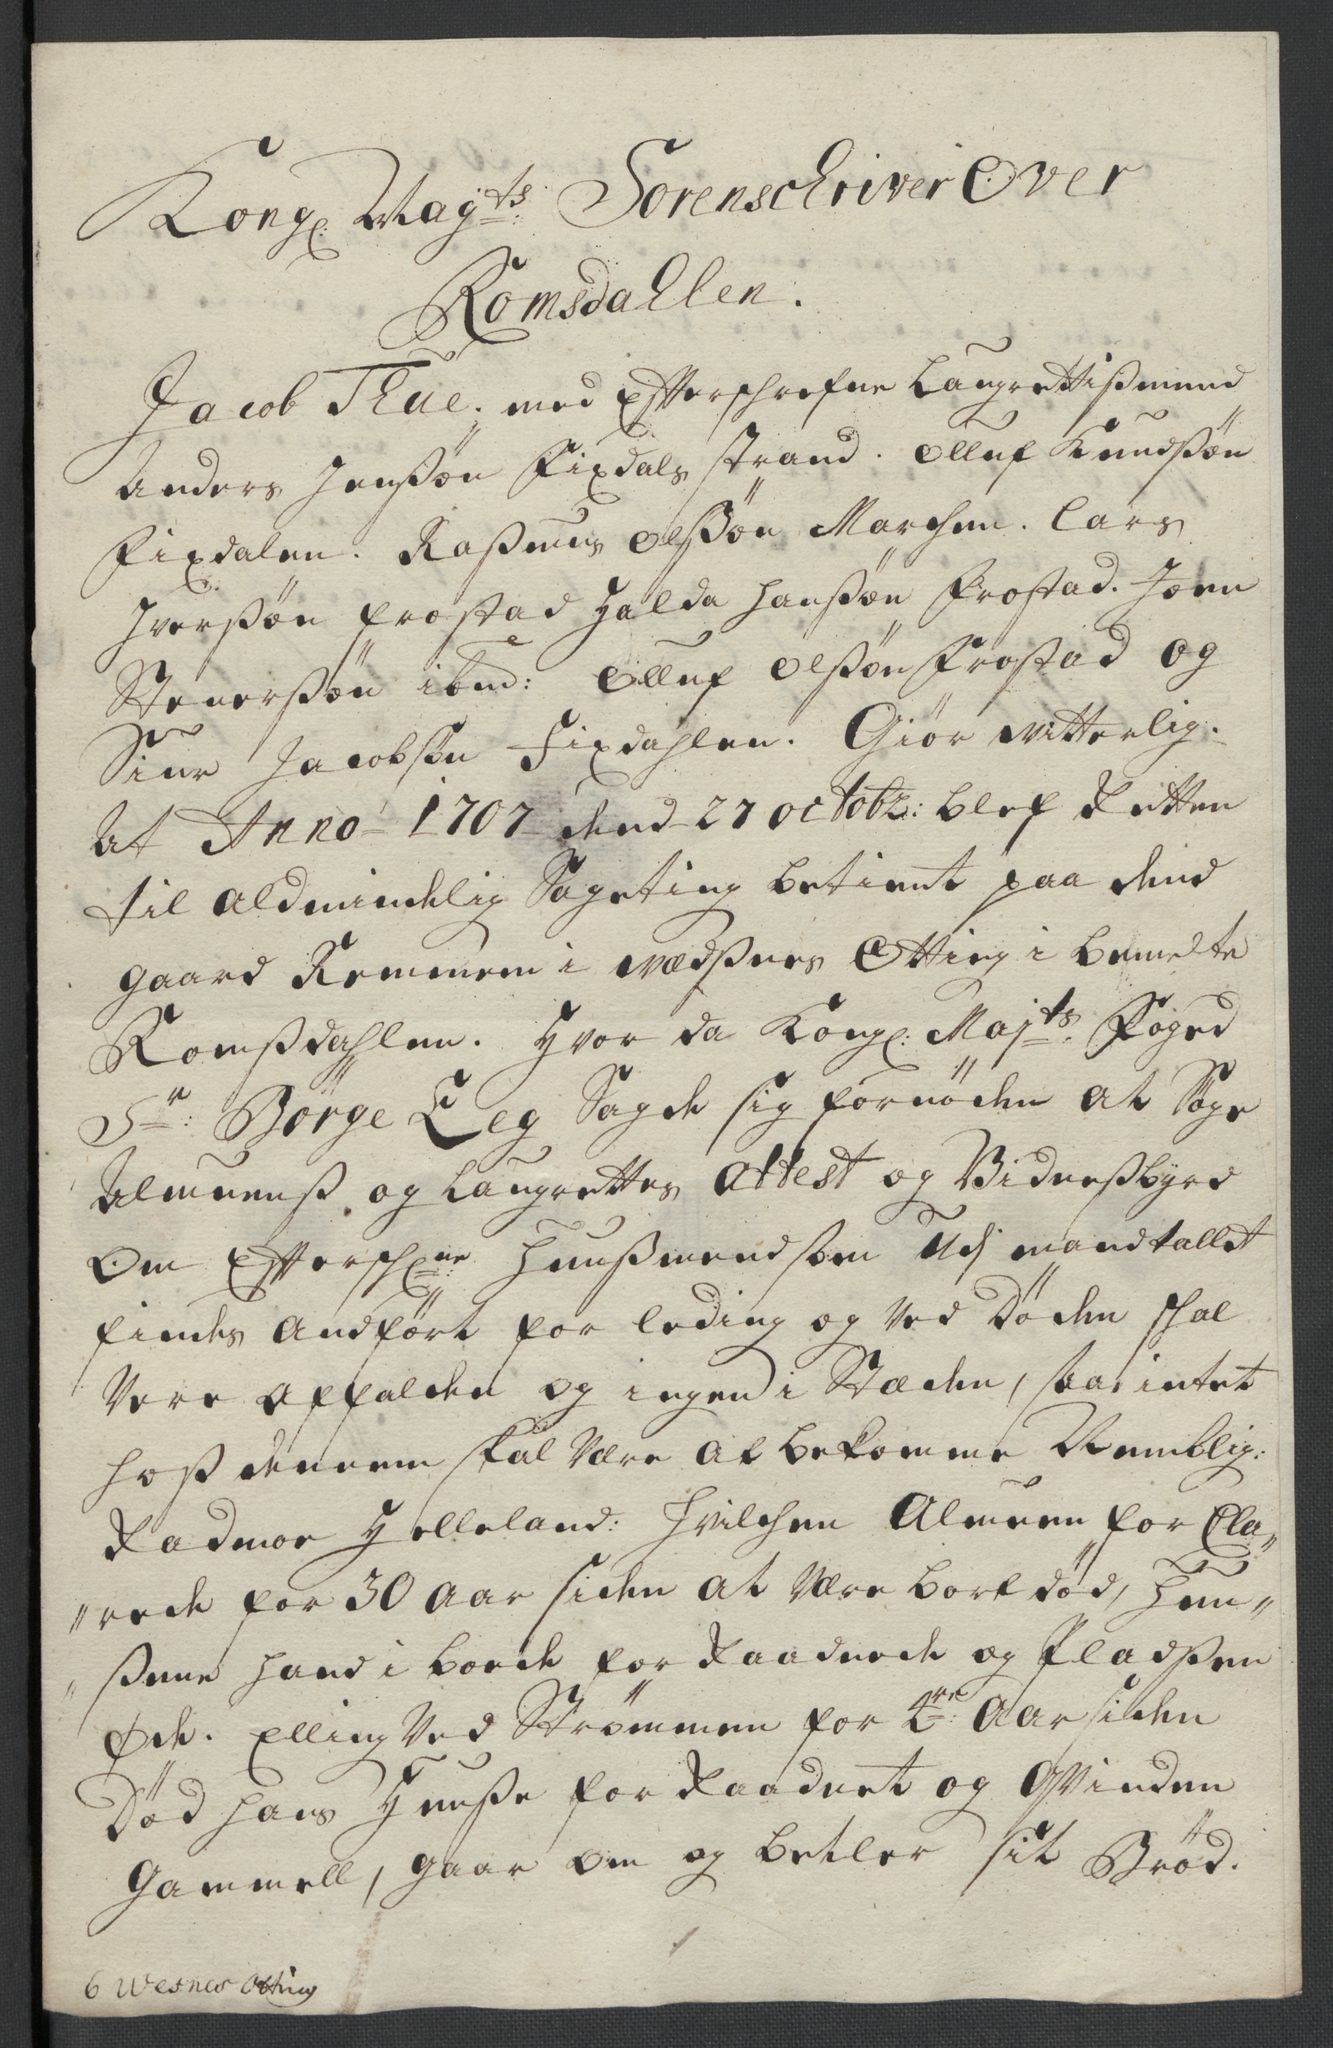 Kongl: Mayts: Sorenschriver Over
Romsdahlen.
Jacob Thue, med Efterschrefne Laugrettismend
Anders Jenssøn Fixdals strand. Olluf Knudssøn
Fixdalen. Rassmus Olssøn Marchen. Lars
Iverssøn frostad Halda Hanssøn Frostad. Joen
Stenerssøn ibmd: Olluf Olssøn Frostad og
Siur Jacobssøn Fixdahlen. Giør vitterlig.
At Anno 1707 dend 27 octobr: blef Retten
til aldmindelig Sageting betient paa dend
gaard Remmem i vædssnes Otting i bemelte
Romssdahlen. Hvor da Kongl: Majts. Foged
Sr: Børge Eeg Sagde sig fornøden at Søge
Almuenss og Laugrettes Attest og Vidnessbyrd
Om Effterschne: Huussmend som Udj mandtallet
findes Andført for leding og Ved Døden schal
Vere affalden og ingen i Stæden, saa intet
hoss dennem skal Være at bekomme Nemblig:
Radmoe Helleland: Hvilchen Almuen for Cla„
„rede for 30 Aar siden at Være bort død, Huu„
„ssene hand i boede for Raadnede og Pladssen
Øde. Elling Ved Strømmen for 2de: Aar siden
Død hans Huusse for Raadnet og Qvinden
Gammell, gaar om og betler sit Brød.
6 Wesnes Otting